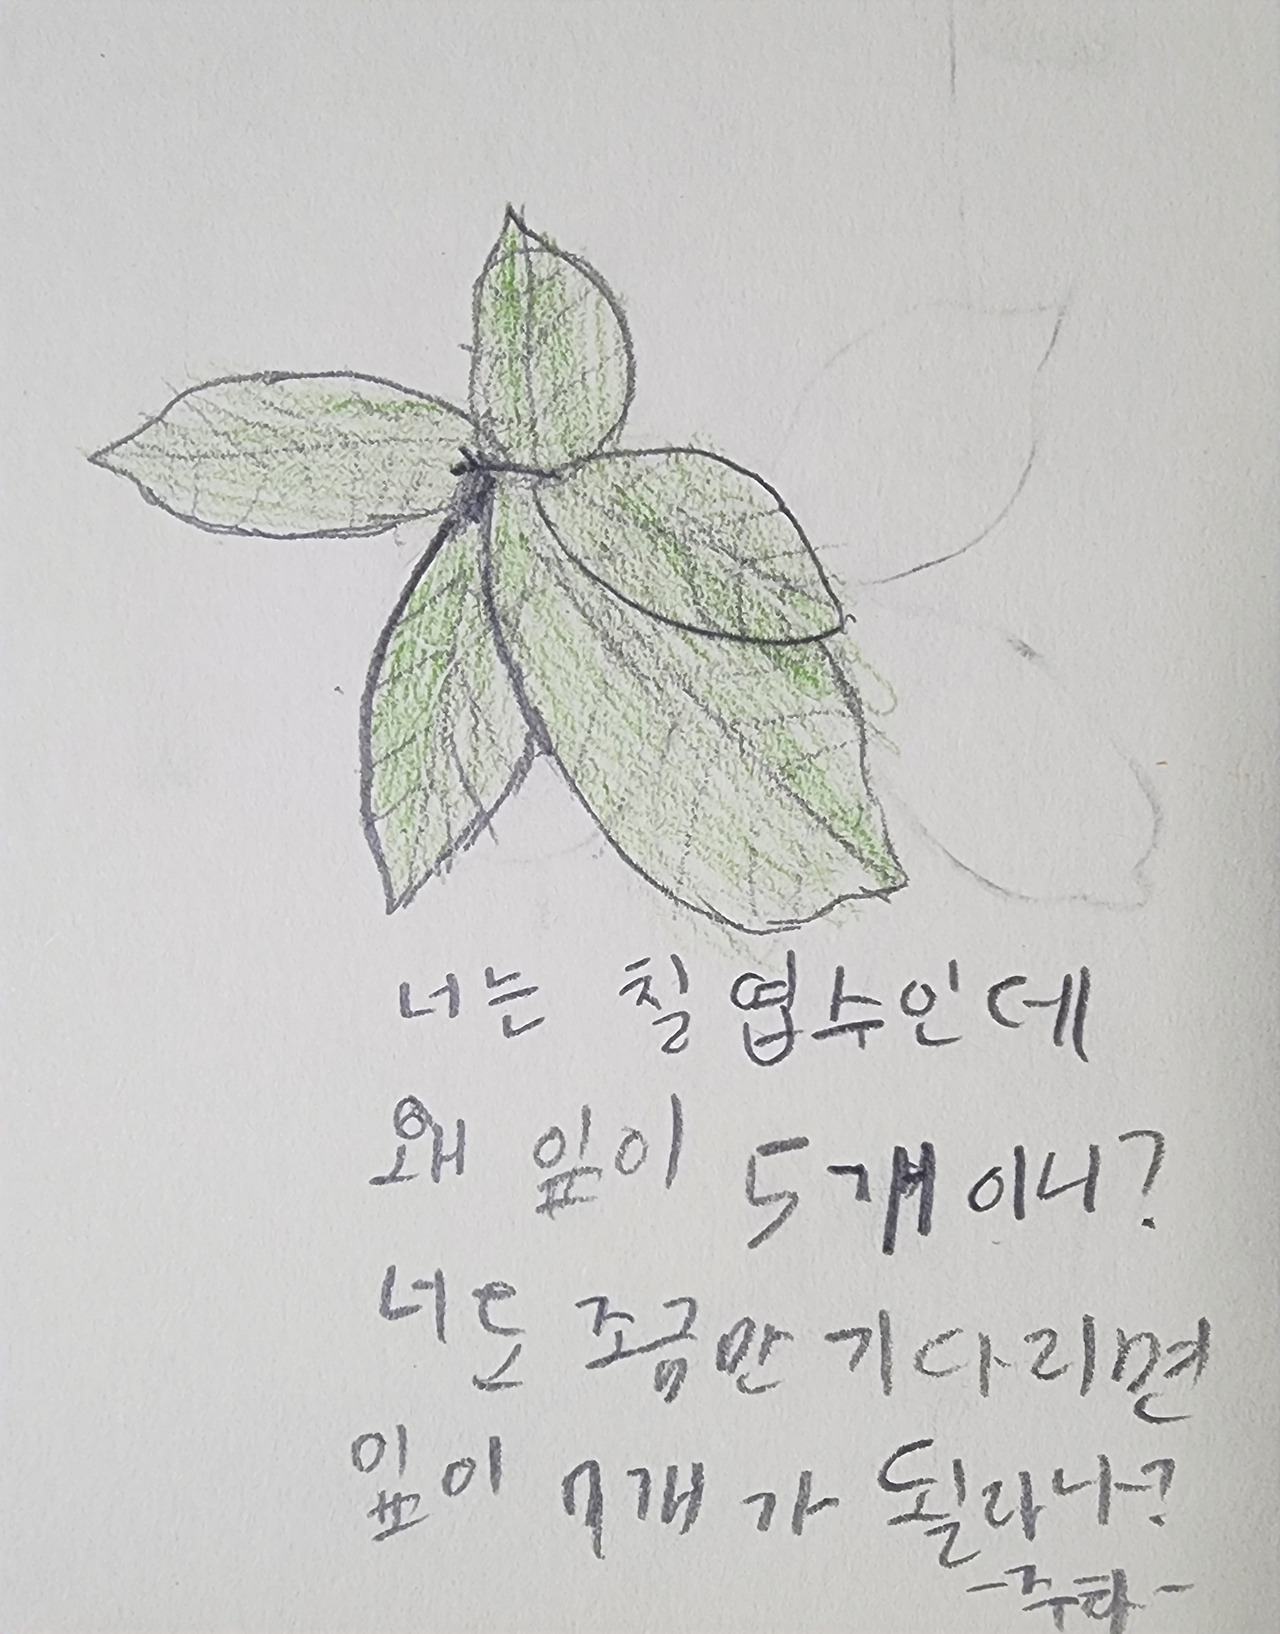 너는 칠엽수인데
왜 잎이 5개이니?
너도 조금만 기다리면
잎이 7개가 될라나?
-주하-